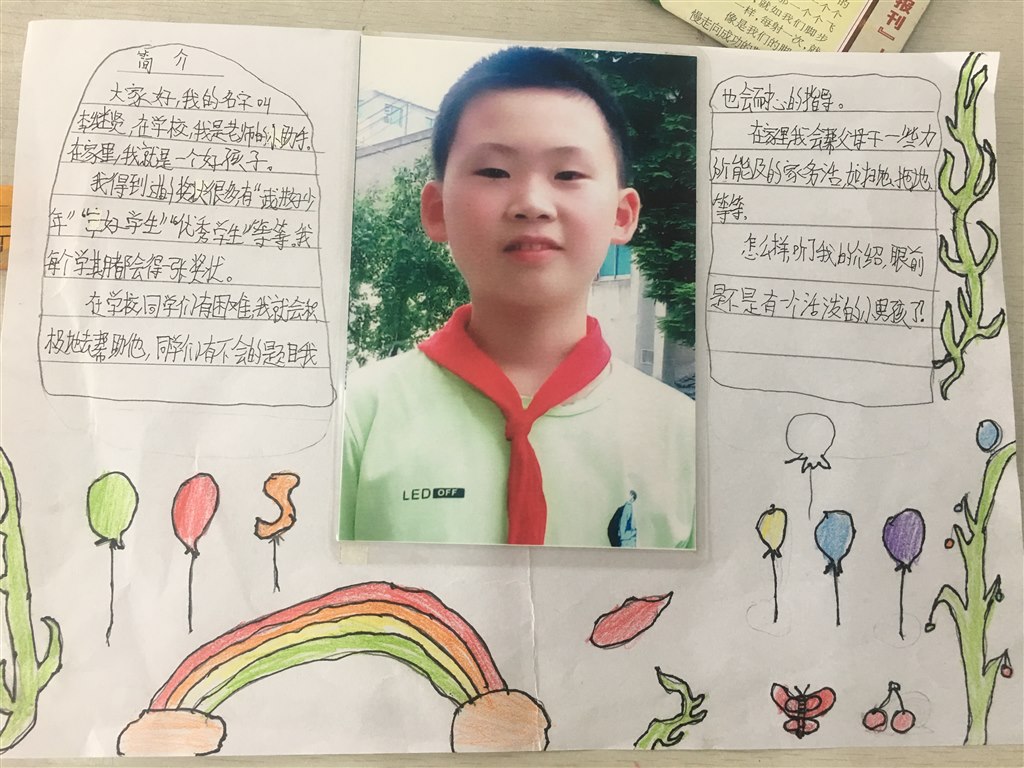 简 介
大家好,我的名字叫
李继贤,在学校,我是老师的小助手。
在家里,我就是一个好孩子。
我得到过的奖状很多有“

年”“三好学生”“优秀学生”等等,我
每个学期都会得一张奖状。
在学校同学们有困难,我就会积
极地去帮助他,同学们有不会的题目我
也会耐心的指导。
在家里我会帮父母干一些力
所能及的家务活,如扫地、拖地
等等。
怎么样,听了我的介绍,眼前
是不是有一个活泼的小男孩了!
LED OFF
报刊』
就如我们脚步
一样,每射一次,就
像是我们的脚
慢走向成功的